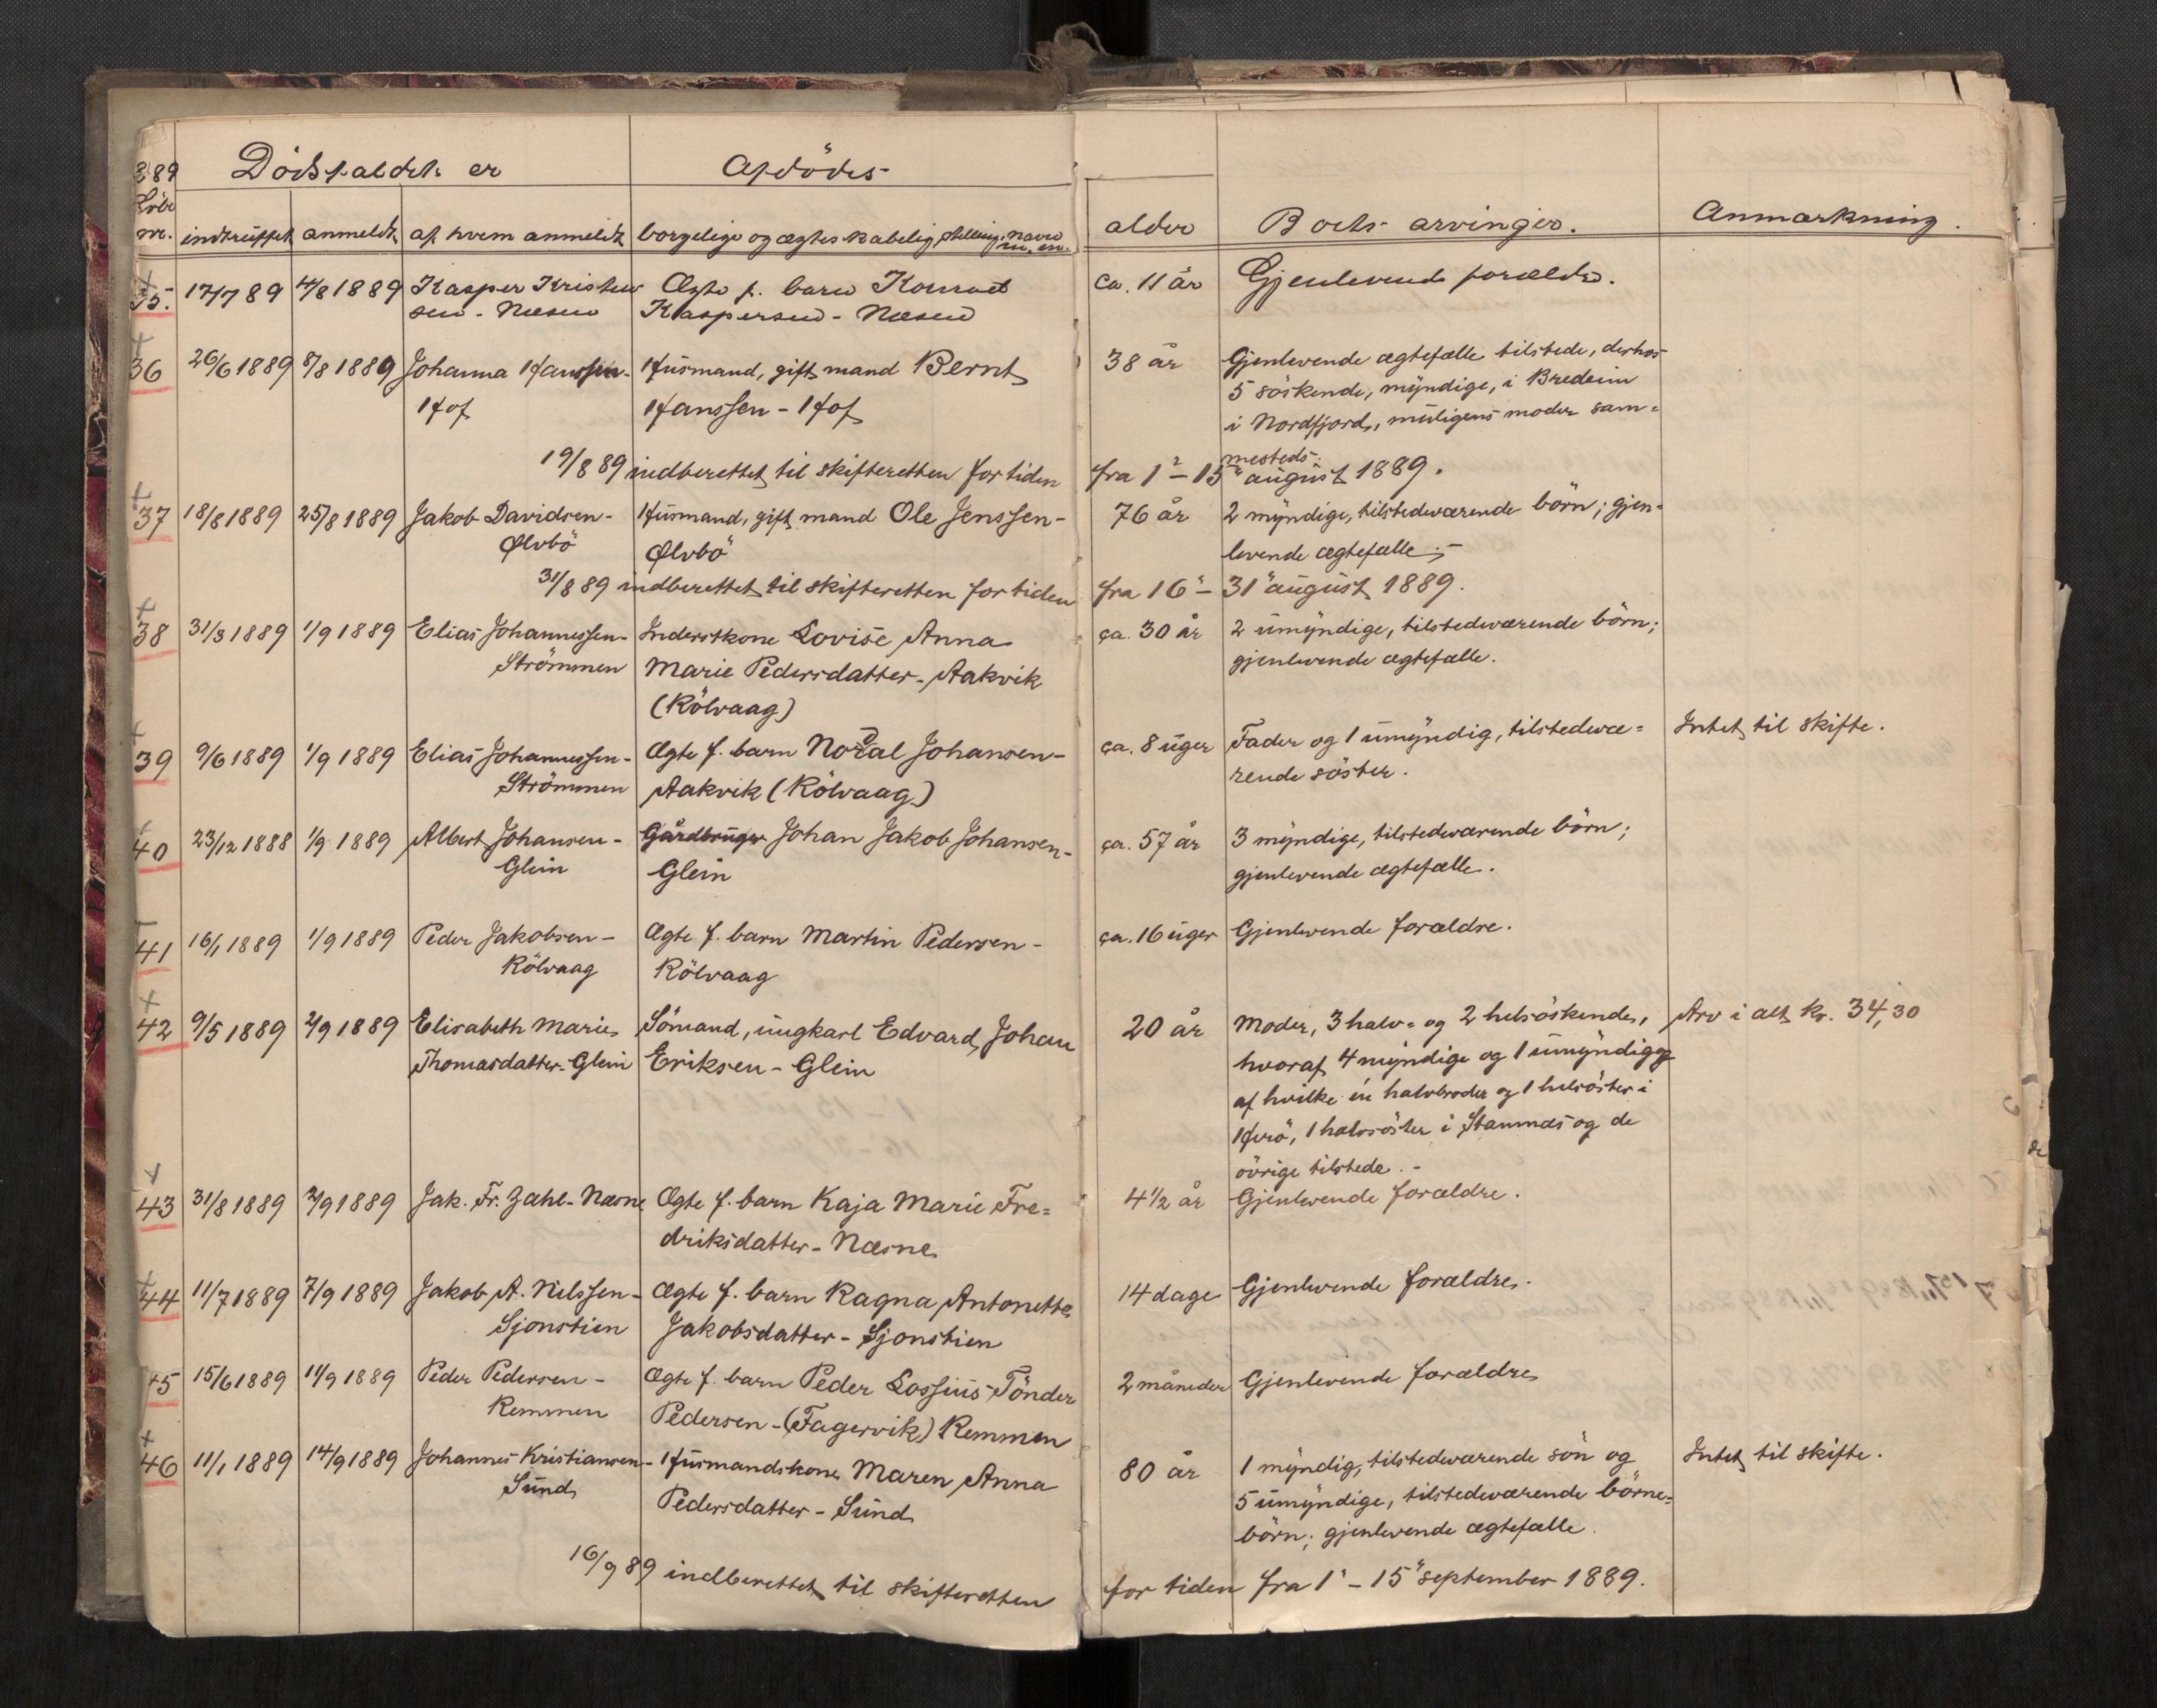 1889 Dödsfaldet er Afdödes
Löbe
nr. indtruffet anmeldt af hvem anmeldt borgelige og ægteskabelig stilling, navn m.m. alder Boets arvinger. Anmærkning.
35. 17/7 89 4/8 1889 Kasper Kristen Ægte f. barn Konrad ca. 11 år Gjenlevende forældre.
sen - Næsne Kaspersen - Næsne
36 26/6 1889 8/8 1889 Johanna Hanssen- Husmand, gift mand Bernt 38 år Gjenlevende ægtefælle tilstede, derhos
Hof Hanssen - Hof 5 söskende, myndige, i Bredeim
i Nordfjord, muligens moder sam=
mesteds.
19/8 89 indberettet til skifteretten for tiden fra 1' - 15' august 1889.
37 18/8 1889 25/8 1889 Jakob Davidsen- Husmand, gift mand Ole Jenssen- 76 år 2 myndige, tilstedeværende börn; gjen=
Ølvbö Ølvbö levende ægtefælle.-
31/8 89 indberettet til skifteretten for tiden fra 16' - 31' august 1889.
38 31/3 1889 1/9 1889 Elias Johannessen- Inderstkone Lovise Anna ca. 30 år 2 umyndige, tilstedeværende börn;
Strömmen Marie Pedersdatter - Aakvik gjenlevende ægtefælle.
(Kölvaag)
39 9/6 1889 1/9 1889 Elias Johannessen- Ægte f. barn Nordal Johansen- ca. 8 uger Fader og 1 umyndig, tilstedevæ= Intet til skifte.
Strömmen Aakvik (Kölvaag) rende söster.
40 23/12 1888 1/9 1889 Albert Johansen- Gårdbruger Johan Jakob Johansen- ca. 57 år 3 myndige, tilstedeværende börn;
Glein Glein gjenlevende ægtefælle.
41 16/1 1889 1/9 1889 Peder Jakobsen- Ægte f. barn Martin Pedersen- ca. 16 uger Gjenlevende forældre.
Kölvaag Kölvaag
42 9/5 1889 2/9 1889 Elisabeth Marie Sömand, ungkarl Edvard Johan 20 år Moder, 3 halv= og 2 helsöskende, Arv i alt kr. 34,30
Thomasdatter-Glein Eriksen - Glein hvoraf 4 myndige og 1 umyndig
af hvilke én halvbroder og 1 helsöster i
Herö, 1 halvsöster i Stamnæs og de
övrige tilstede.-
43 31/8 1889 2/9 1889 Jak. Fr. Zahl - Næsne Ægte f. barn Kaja Marie Fre= 4 1/2 år Gjenlevende forældre.
driksdatter - Næsne
44 11/7 1889 7/9 1889 Jakob A. Nilssen- Ægte f. barn Ragna Antonette 14 dage Gjenlevende forældre.
Sjonstien Jakobsdatter - Sjonstien
45 15/6 1889 11/9 1889 Peder Pedersen- Ægte f. barn Peder Lossius Tönder 2 måneder Gjenlevende forældre
Remmen Pedersen - (Fagervik) Remmen
46 11/1 1889 14/9 1889 Johannes Kristiansen- Husmandskone Maren Anna 80 år 1 myndig, tilstedeværende sön og Intet til skifte.
Sund Pedersdatter - Sund 5 umyndige, tilstedeværende börne=
börn; gjenlevende ægtefælle.
16/9 89 indberettet til skifteretten for tiden fra 1' - 15' september 1889.